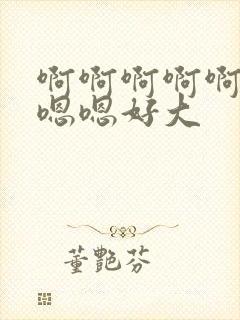 啊啊啊啊啊
嗯嗯好大
董艷芬